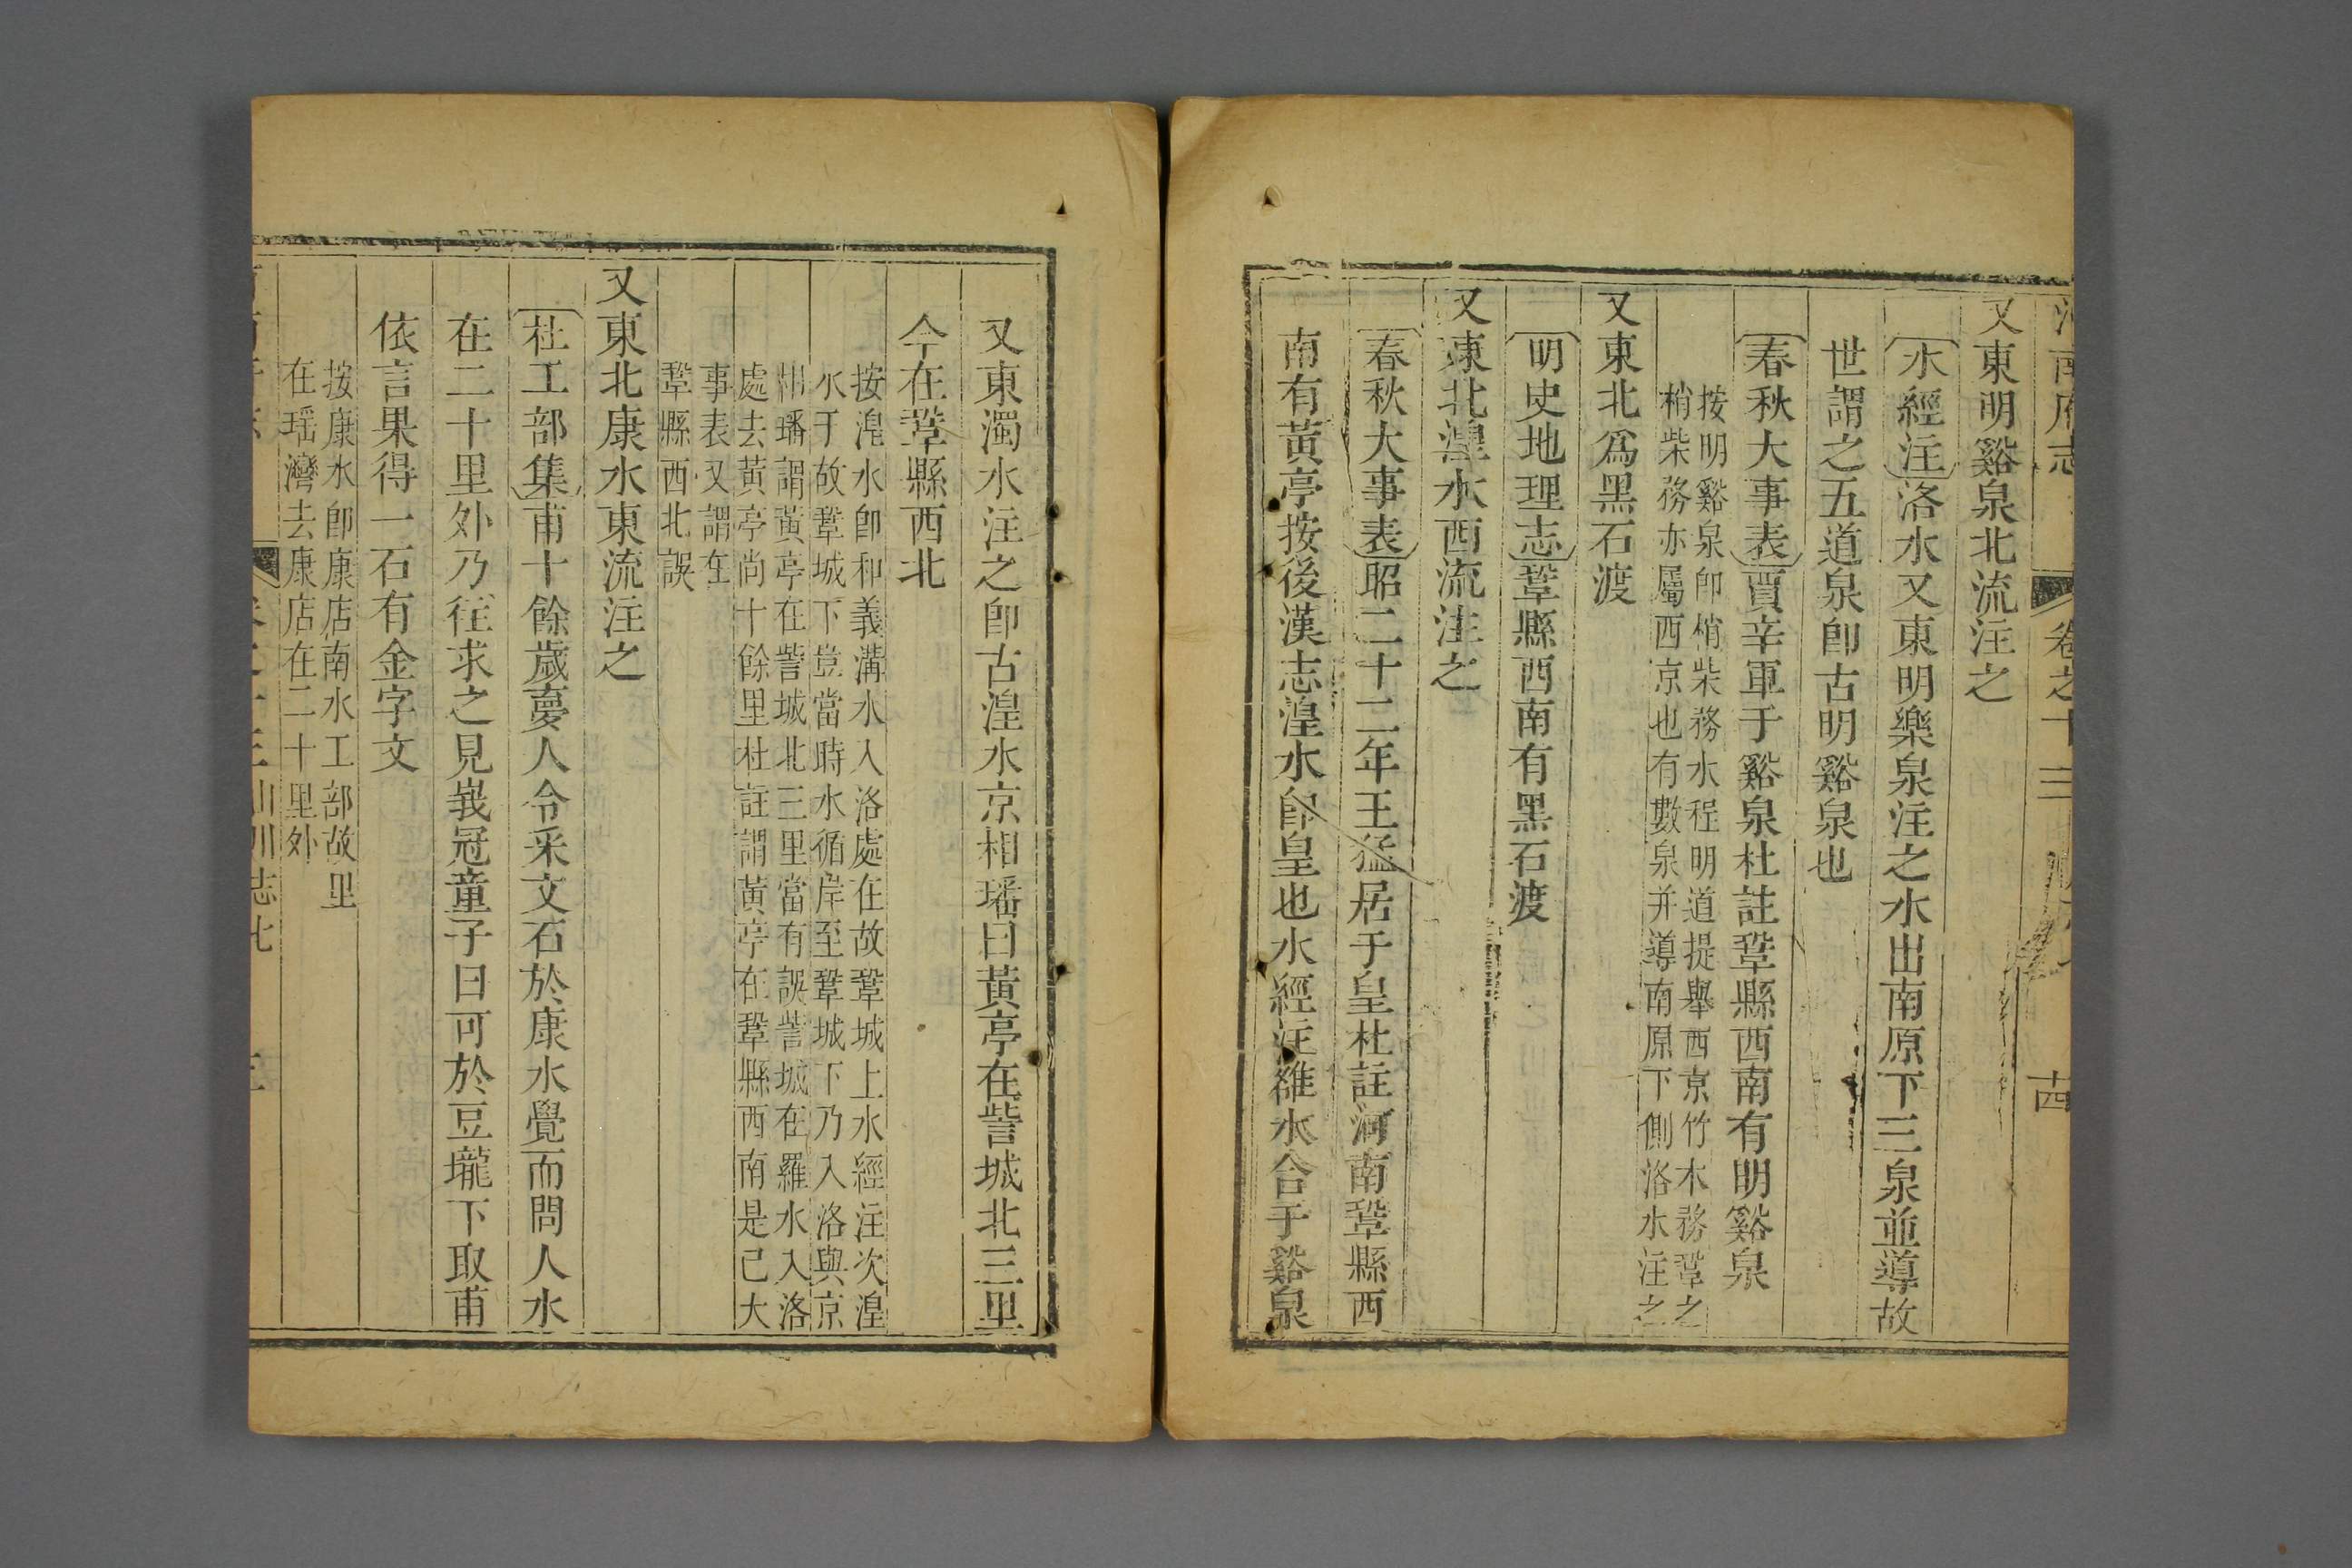 河南府志 卷之十三 十四
又東明谿泉北流注之
水經注洛水又東明樂泉注之水出南原下三泉並導故
世謂之五道泉卽古明谿泉也
春秋大事表賈辛軍于谿泉杜註鞏縣西南有明谿泉
按明谿泉卽梢柴務水程明道提舉西京竹木務鞏之
梢柴務亦屬西京也有數泉并導南原下側洛水注之
又東北爲黑石渡
明史地理志鞏縣西南有黑石渡
又東北湟水西流注之
春秋大事表昭二十二年王猛居于皇杜註河南鞏縣西
南有黃亭按後漢志湟水卽皇也水經注雒水合于谿泉
又東濁水注之卽古湟水京相璠曰黃亭在訾城北三里
今在鞏縣西北
按湟水卽和義溝水入洛處在故鞏城上水經注次湟
水于故鞏城下豈當時水循岸至鞏城下乃入洛與京
相璠謂黃亭在訾城北三里當有誤訾城在羅水入洛
處去黃亭尚十餘里杜註謂黃亭在鞏縣西南是已大
事表又謂在
鞏縣西北誤
又東北康水東流注之
杜工部集甫十餘歲夢人令采文石於康水覺而問人水
在二十里外乃往求之見峩冠童子曰可於豆壠下取甫
依言果得一石有金字文
按康水卽康店南水工部故里
在瑶灣去康店在二十里外
山川志七